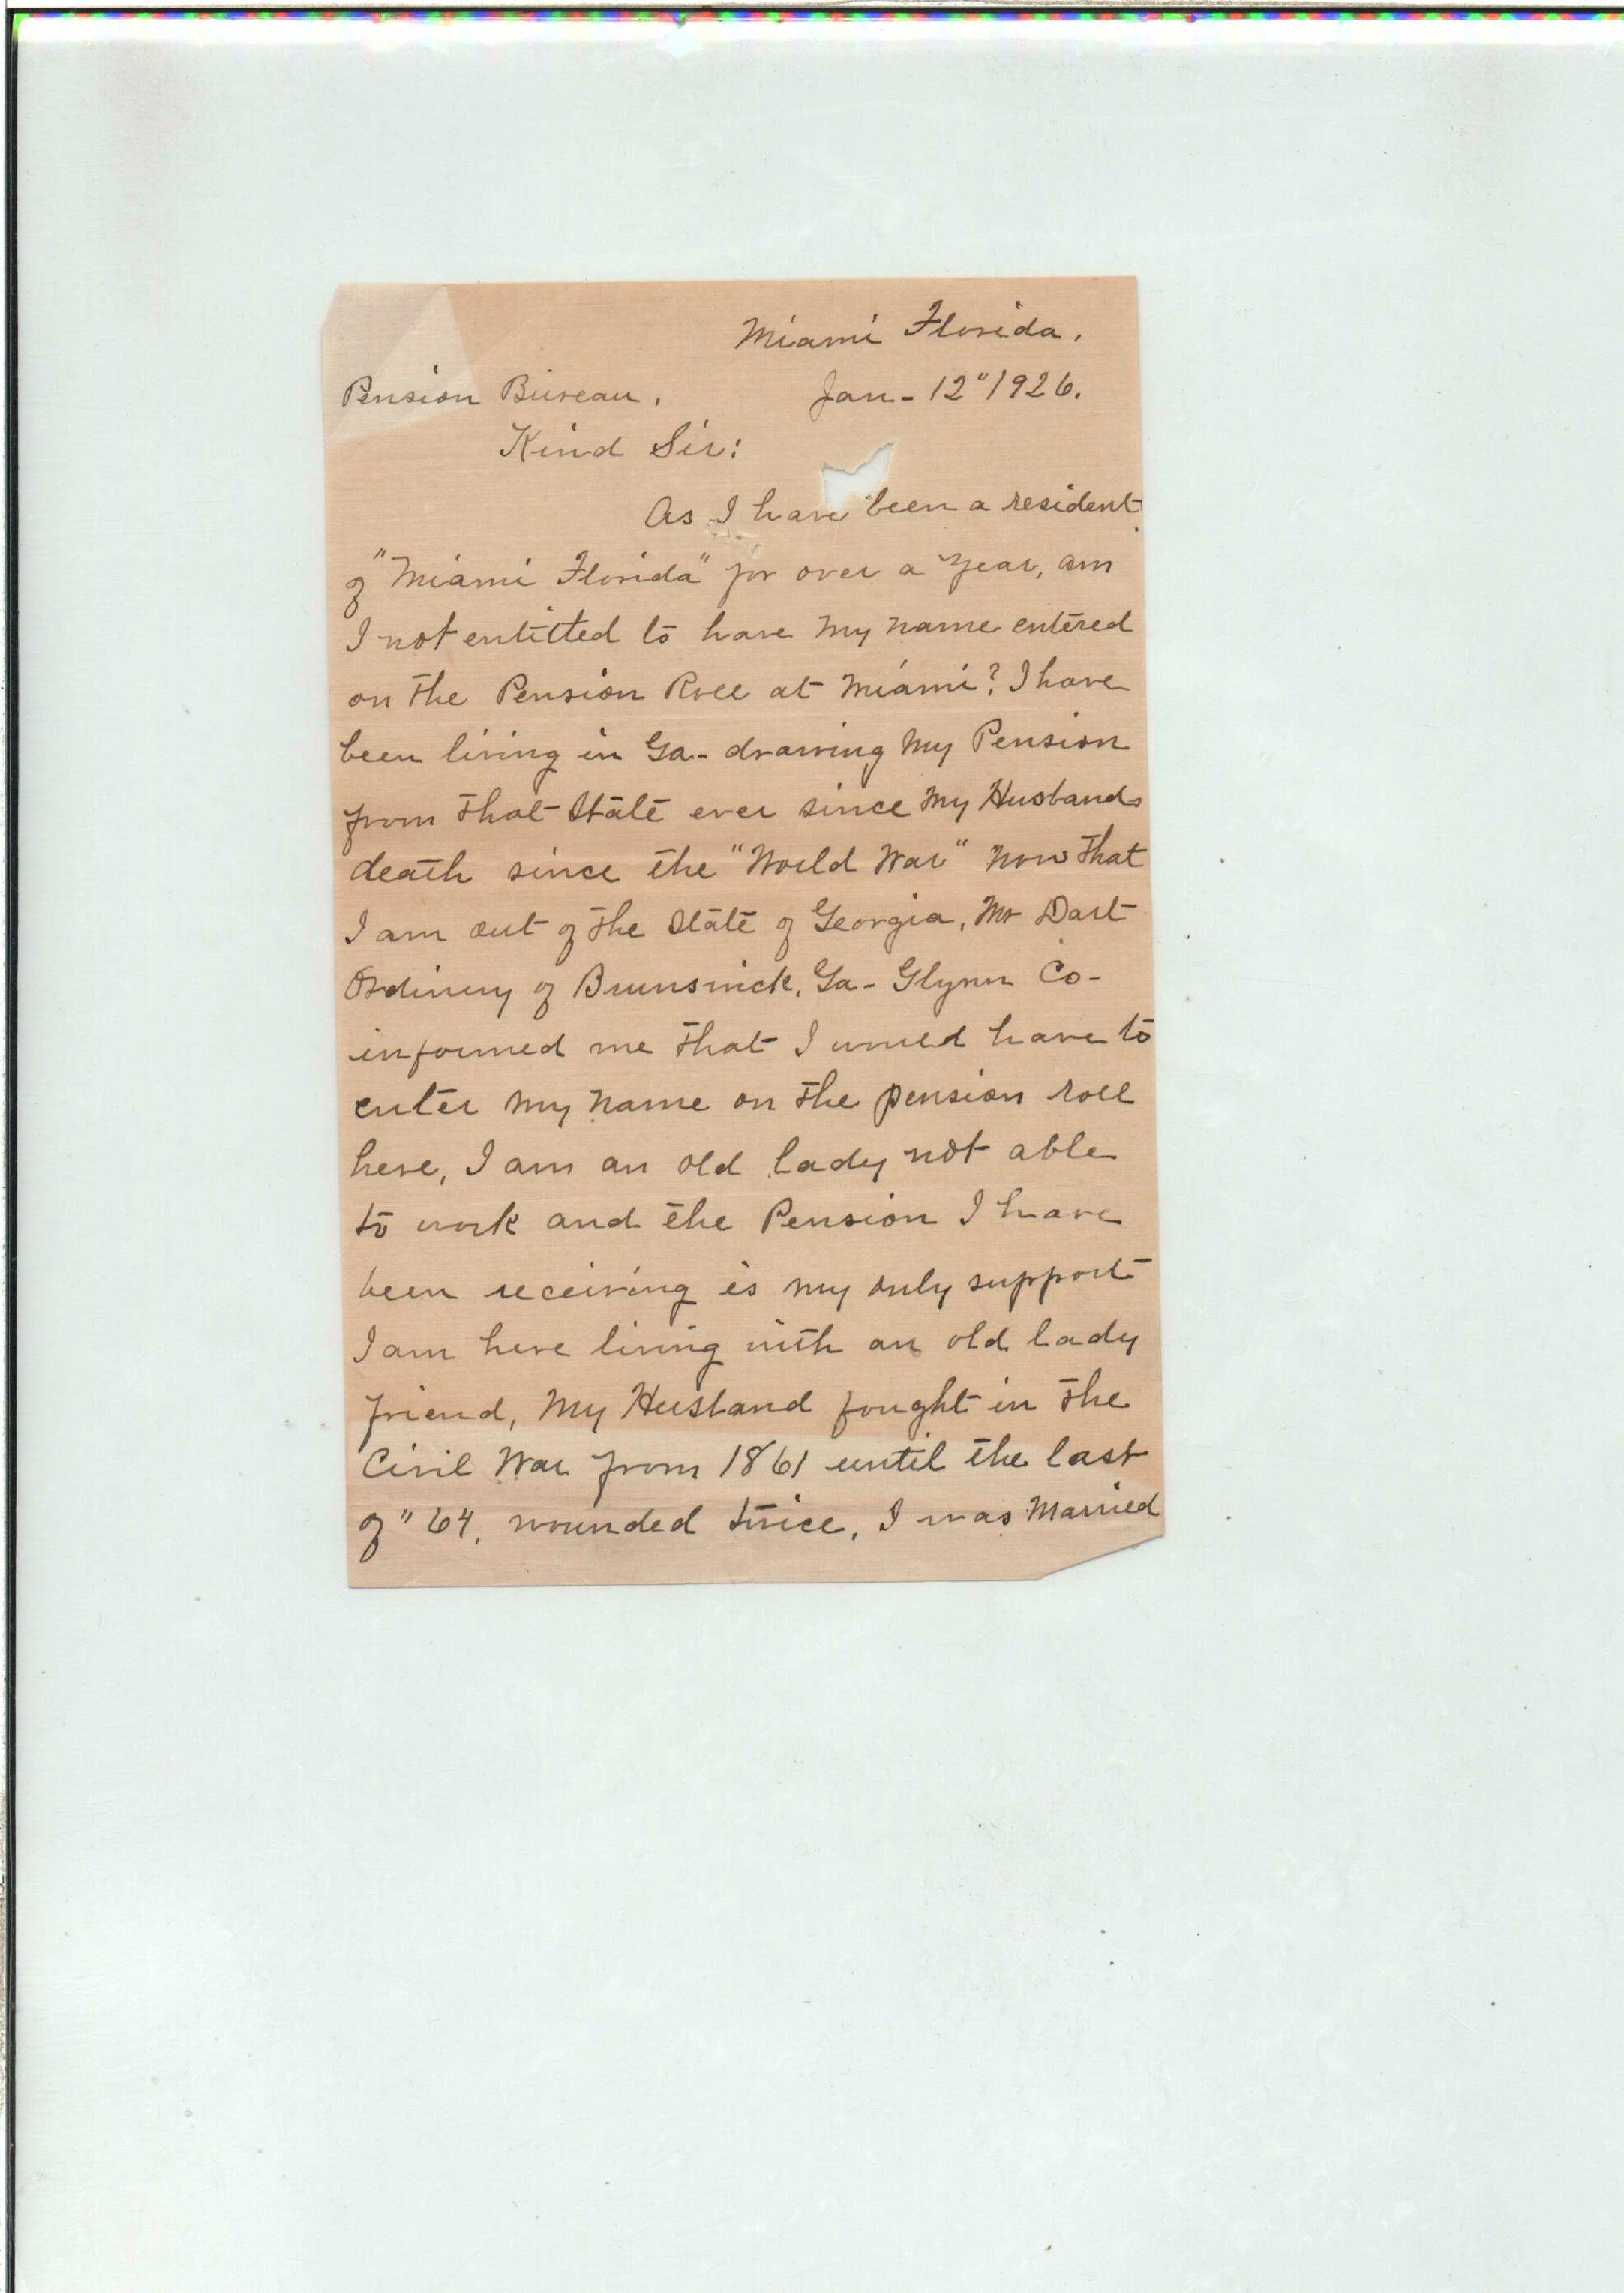 Miami Florida.
Pension Bureau. Jan - 12" 1926.
Kind Sir:
As I have been a resident
of "Miami Florida" for over a year, am
I not entitled to have my name entered
on the Pension Roll at Miami? I have
been living in Ga - drawing my Pension
from that State ever since my Husbands
death since the "World War" now that
I am out of the State of Georgia, Mr Dart
Ordinery of Brunswick, Ga - Glynn Co -
informed me that I would have to
enter my name on the pension roll
here, I am an old lady not able
to work and the Pension I have
been receiving is my only support
I am here living with an old lady
friend, My Husband fought in the
Civil War from 1861 until the last
of "64, wounded twice, I was Married